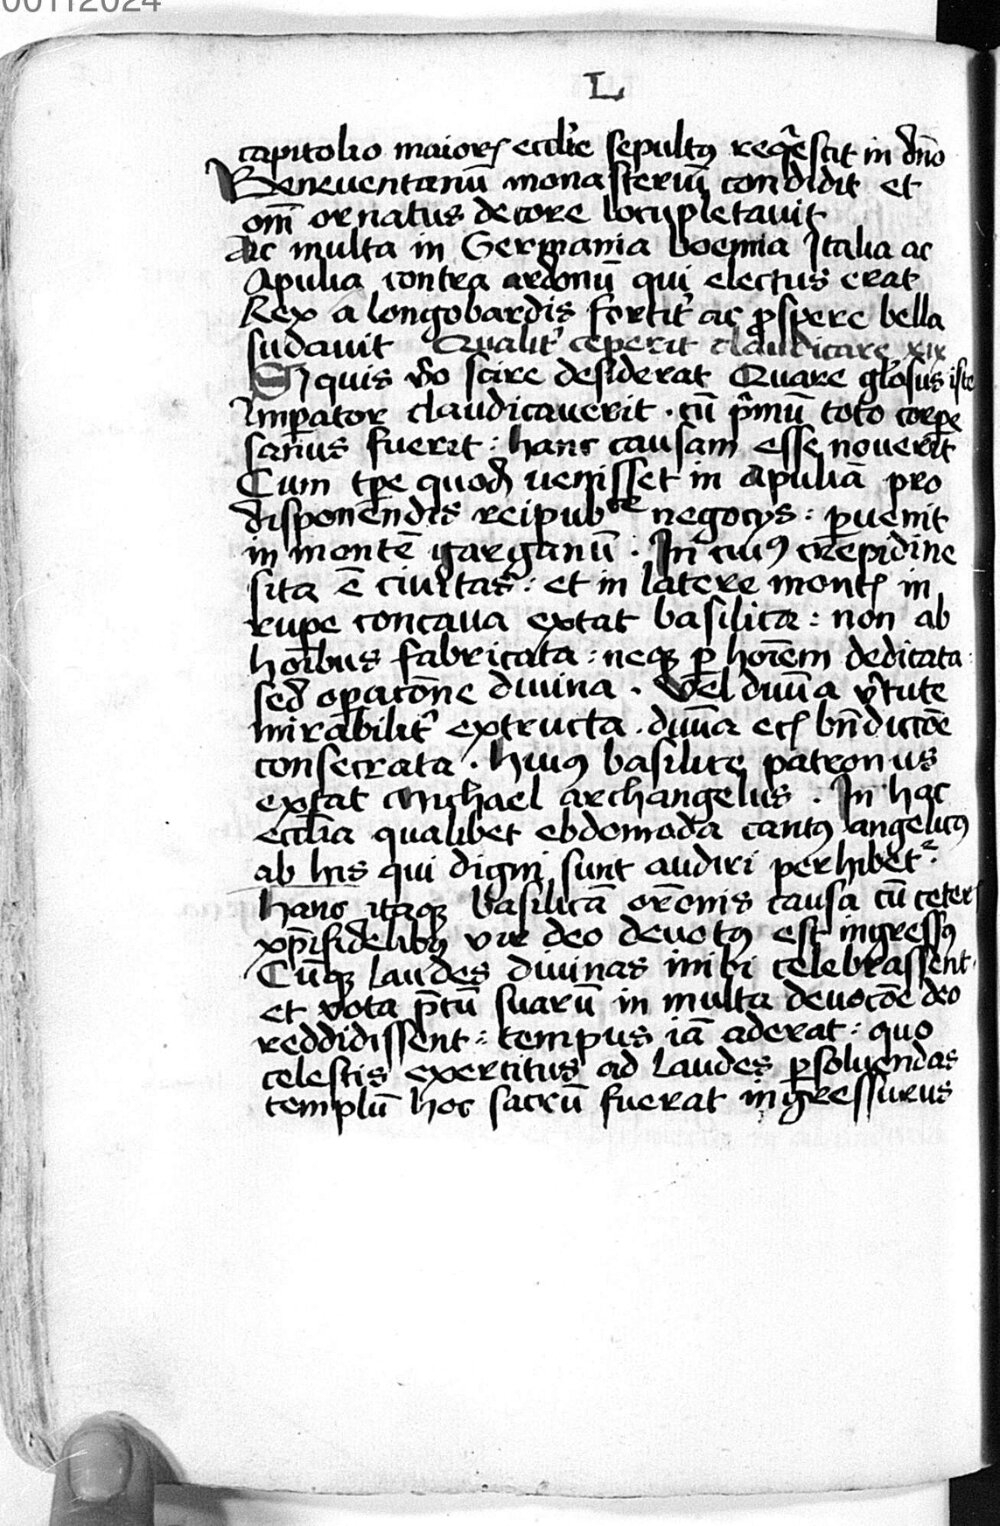 00112024
L
capitolio maioris eccl̄ie sepultꝰ req̄escit in dn̄o
Beneuentanū monasteriū condidit et
om̄i ornatus decore locupletauit
Ac multa in Germania boemia Italia ac
Apulia contra ardonū qui electus erat
Rex a longobardis fortit᷑ ac ꝓspere bella
sudauit Qualit᷑ ceperit claudicare xix
Si quis v̄o scire desiderat Quare gl̄osus iste
Imꝑator claudicauerit · cū p̄mū toto corꝑe
sanus fuerit : hanc causam esse nouerit
Cum tꝑe quodā uenisset in apuliā pro
disponendis reipubce negocijs : ꝑuenit
in montē garganū · In cuiꝰ crepidine
sita ē ciuitas : et in latere montꝭ in
rupe concaua extat basilica : non ab
hoīibus fabricata : neqꝫ ꝑ hoīem dedicata ·
sed oꝑacōne diuina · Vel diuīa v̄tute
mirabilit᷑ extructa · diuīa ecꝭ bn̄dictōe
consecrata · huiꝰ basilice patronus
extat Michael archangelus · In hac
eccl̄ia qualibet ebdomada cantꝰ angelicꝰ
ab his qui digni sunt audiri perhibet᷑ ·
hanc itaqꝫ basilicā or̄onis causa cū ceterꝭ
xp̄ifidelibꝫ vir deo deuotꝰ est ingressꝰ
Cūqꝫ laudes diuinas inibi celebrassent ·
et vota p̄cū suarū in multa deuocōe deo
reddidissent : tempus iā aderat : quo
celestis exercitus ad laudes ꝑsoluendas
templū hoc sacrū fuerat ingressurus